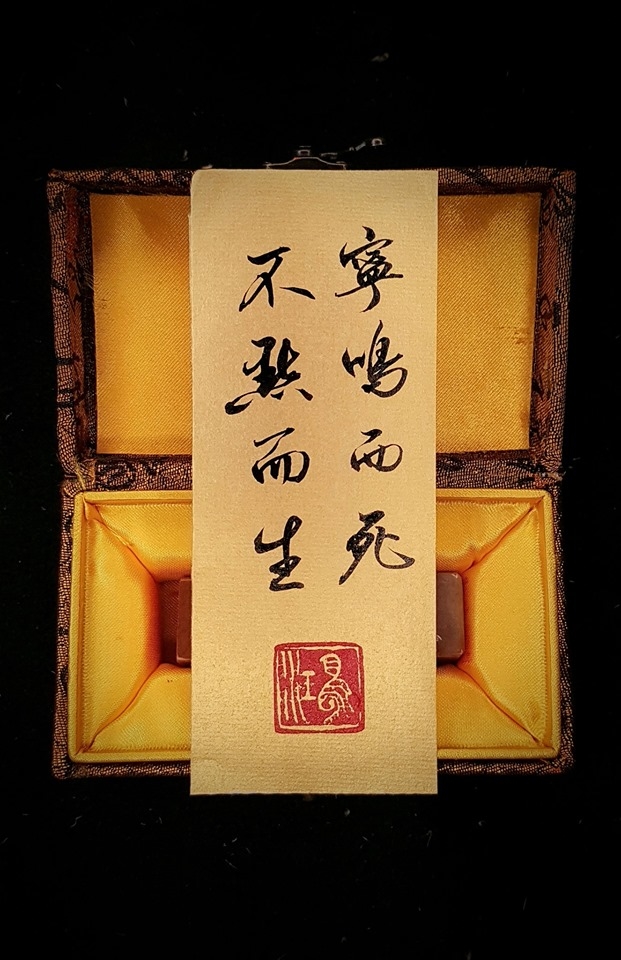 寧鳴而死
不默而生